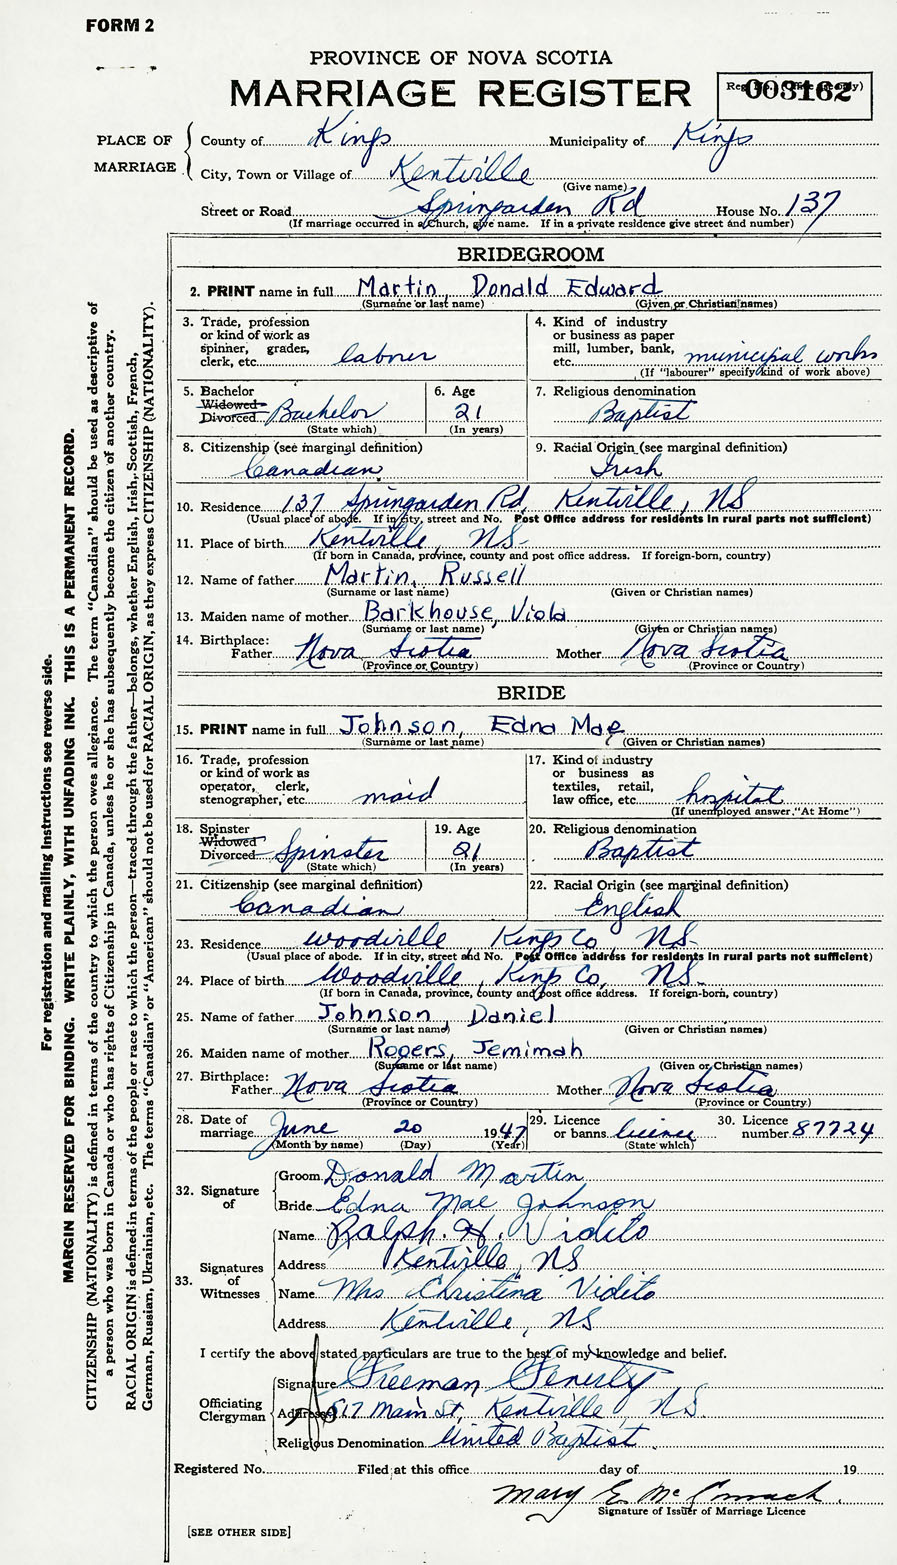 FORM 2
PROVINCE OF NOVA SCOTIA
MARRIAGE REGISTER
003162
PLACE OF MARRIAGE
County of Kings Municipality of Kings
City, Town or Village of Kentville
(Give name)
Street or Road Springarden Rd House No. 137
(If marriage occurred in a Church, give name. If in a private residence give street and number)
BRIDEGROOM
2. PRINT name in full Martin, Donald Edward
(Surname or last name) (Given or Christian names)
3. Trade, profession or kind of work as spinner, grader, clerk, etc. labrer
4. Kind of industry or business as paper mill, lumber, bank, etc. municipal works
(If "labourer" specify kind of work above)
5. Bachelor Widowed Divorced Bachelor
(State which)
6. Age 21
(In years)
7. Religious denomination Baptist
8. Citizenship (see marginal definition) Canadian
9. Racial Origin (see marginal definition) Irish
10. Residence 137 Springarden Rd, Kentville, NS
(Usual place of abode. If in city, street and No. Post Office address for residents in rural parts not sufficient)
11. Place of birth Kentville, NS-
(If born in Canada, province, county and post office address. If foreign-born, country)
12. Name of father Martin, Russell
(Surname or last name) (Given or Christian names)
13. Maiden name of mother Barkhouse, Viola
(Surname or last name) (Given or Christian names)
14. Birthplace: Father Nova Scotia Mother Nova Scotia
(Province or Country) (Province or Country)
BRIDE
15. PRINT name in full Johnson, Edna Mae
(Surname or last name) (Given or Christian names)
16. Trade, profession or kind of work as operator, clerk, stenographer, etc. maid
17. Kind of industry or business as textiles, retail, law office, etc. hospital
(If unemployed answer "At Home")
18. Spinster Widowed Divorced Spinster
(State which)
19. Age 21
(In years)
20. Religious denomination Baptist
21. Citizenship (see marginal definition) Canadian
22. Racial Origin (see marginal definition) English
23. Residence Woodville, Kings Co, NS-
(Usual place of abode. If in city, street and No. Post Office address for residents in rural parts not sufficient)
24. Place of birth Woodville, Kings Co, NS-
(If born in Canada, province, county and post office address. If foreign-born, country)
25. Name of father Johnson, Daniel
(Surname or last name) (Given or Christian names)
26. Maiden name of mother Rogers, Jemimah
(Surname or last name) (Given or Christian names)
27. Birthplace: Father Nova Scotia Mother Nova Scotia
(Province or Country) (Province or Country)
28. Date of marriage June 20 1947
(Month by name) (Day) (Year)
29. Licence or banns licence
(State which)
30. Licence number 87724
32. Signature of
Groom Donald Martin
Bride Edna Mae Johnson
33. Signatures of Witnesses
Name Ralph. H. Vidito
Address Kentville, NS
Name Mrs Christina Vidito
Address Kentville, NS
I certify the above stated particulars are true to the best of my knowledge and belief.
Officiating Clergyman
Signature Freeman Fenerty
Address 517 Main St, Kentville, NS.
Religious Denomination United Baptist
Registered No. Filed at this office day of 19
Mary E. McCormack
Signature of Issuer of Marriage Licence
[SEE OTHER SIDE]
For registration and mailing instructions see reverse side.
MARGIN RESERVED FOR BINDING. WRITE PLAINLY, WITH UNFADING INK. THIS IS A PERMANENT RECORD.
CITIZENSHIP (NATIONALITY) is defined in terms of the country to which the person owes allegiance. The term "Canadian" should be used as descriptive of
a person who was born in Canada or who has rights of Citizenship in Canada, unless he or she has subsequently become the citizen of another country.
RACIAL ORIGIN is defined in terms of the people or race to which the person—traced through the father—belongs, whether English, Irish, Scottish, French,
German, Russian, Ukrainian, etc. The terms "Canadian" or "American" should not be used for RACIAL ORIGIN, as they express CITIZENSHIP (NATIONALITY).